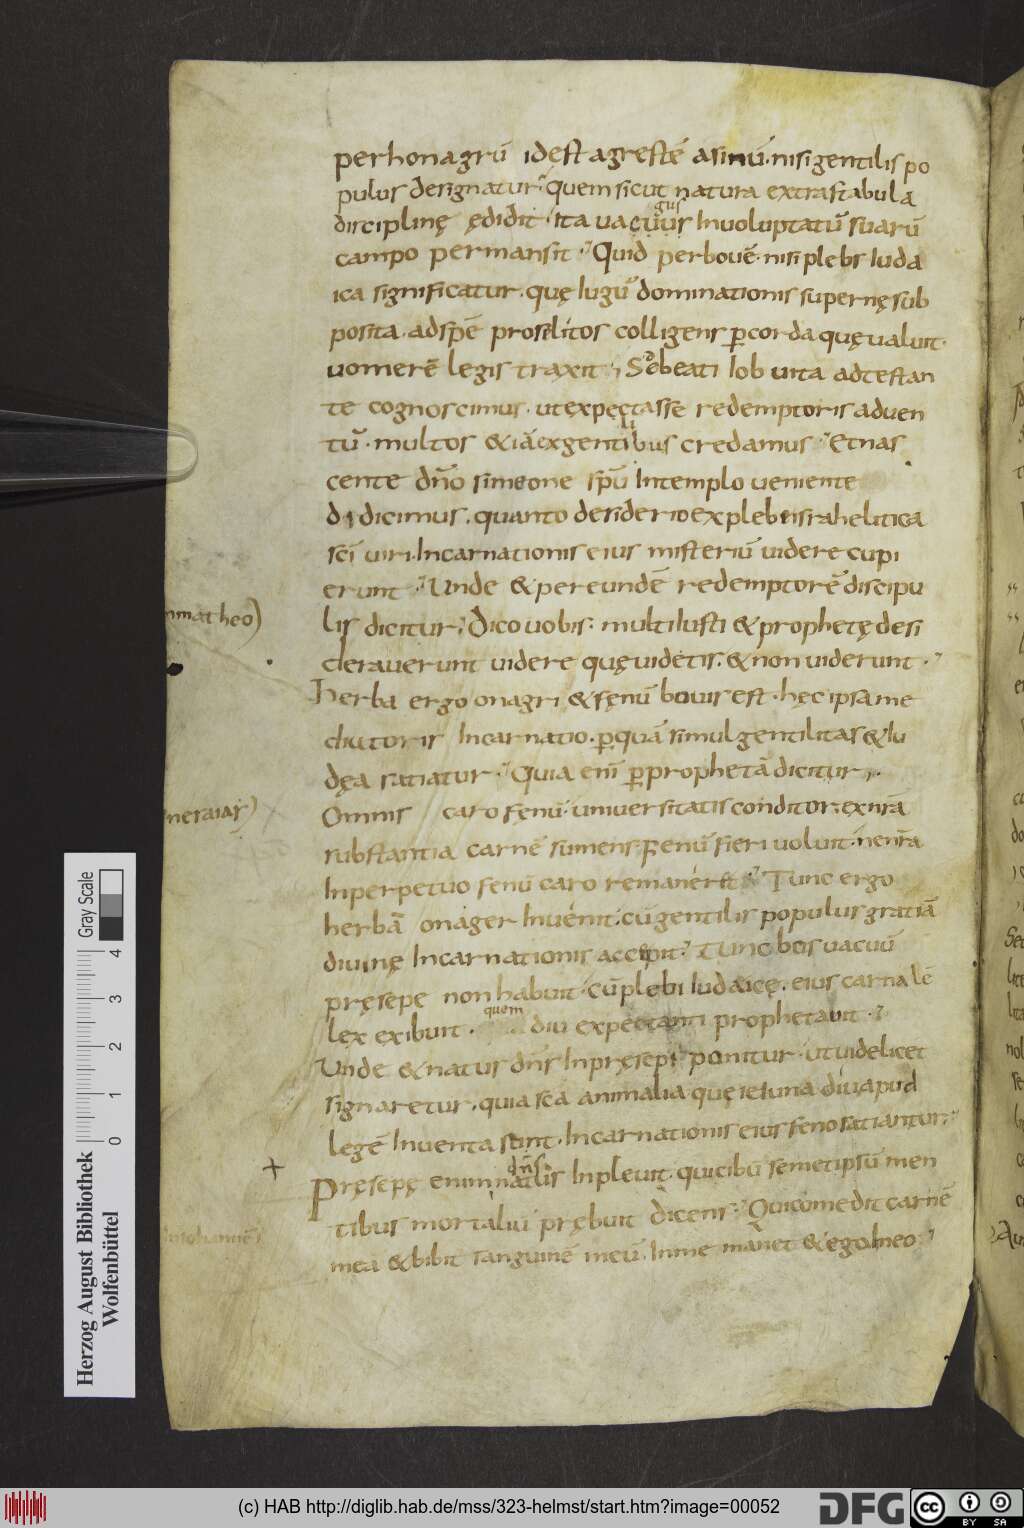 perhonagrū idest agrestē asinū. nisi gentilis po
pulus designatur. quem sicut natura extra stabula
disciplinę ędidit. ita uacuus Inuoluptatū suarū
gus
campo permansit. Quid per bouē. nisi plebs Iuda
ica significatur. quę Iugū dominationis supernę sub
posita. adspē proselitos colligens p corda quę ualuit.
uomerē legis traxit; Sed beati Iob uita adtestan
te cognoscimus. ut expectasse redemptoris aduen
tū. multos & iā ex gentibus credamus. Et nas
cente dn̄o simeone spū Intemplo ueniente
didicimus. quanto desiderio ex plebe israhelitica
sc̄i uiri. Incarnationis eius misteriū uidere cupi
erunt. Unde & per eundē redemptorē discipu
lis dicitur; Dico uobis. multi Iusti & prophetę desi
derauerunt uidere quę uidetis. & non uiderunt.
mmatheo)
herba ergo onagri & fęnū bouis est. hęc ipsa me
diatoris Incarnatio. p quā simul gentilitas & Iu
dęa satiatur. Quia enī p prophetā dicitur,
Omnis caro fenū. uniuersitatis conditor. ex nr̄ā
nesaiaȝ)
substantia carnē sumens. Fenū fieri uoluit. ne nr̄a
Inperpetuo fenū caro remaneret. Tunc ergo
herbā onager Inuenit. cū gentilis populus gratiā
diuinę Incarnationis accepit. Tunc bos uacuū
pręsepe non habuit. cū plebi Iudaicę. eius carnalē
lex exibuit. diu expectanti prophetauit.
quem
Unde & natus dn̄s Inpręsepi ponitur. ut uidelicet
signaretur. quia sc̄a animalia que ieiuna diu apud
legē Inuenta sunt. Incarnationis eius feno satiantur.
Pręsepę enim natus Inpleuit. qui cibū semetipsū men
dn̄s
tibus mortaliū prębuit dicens. Qui comedit carnē
meā & bibit sanguinē meū. Inme manet & ego Ineo.
Iniohannē)
Gray Scale
0 1 2 3 4
Herzog August Bibliothek
Wolfenbüttel
(c) HAB http://diglib.hab.de/mss/323-helmst/start.htm?image=00052
DFG
cc BY SA